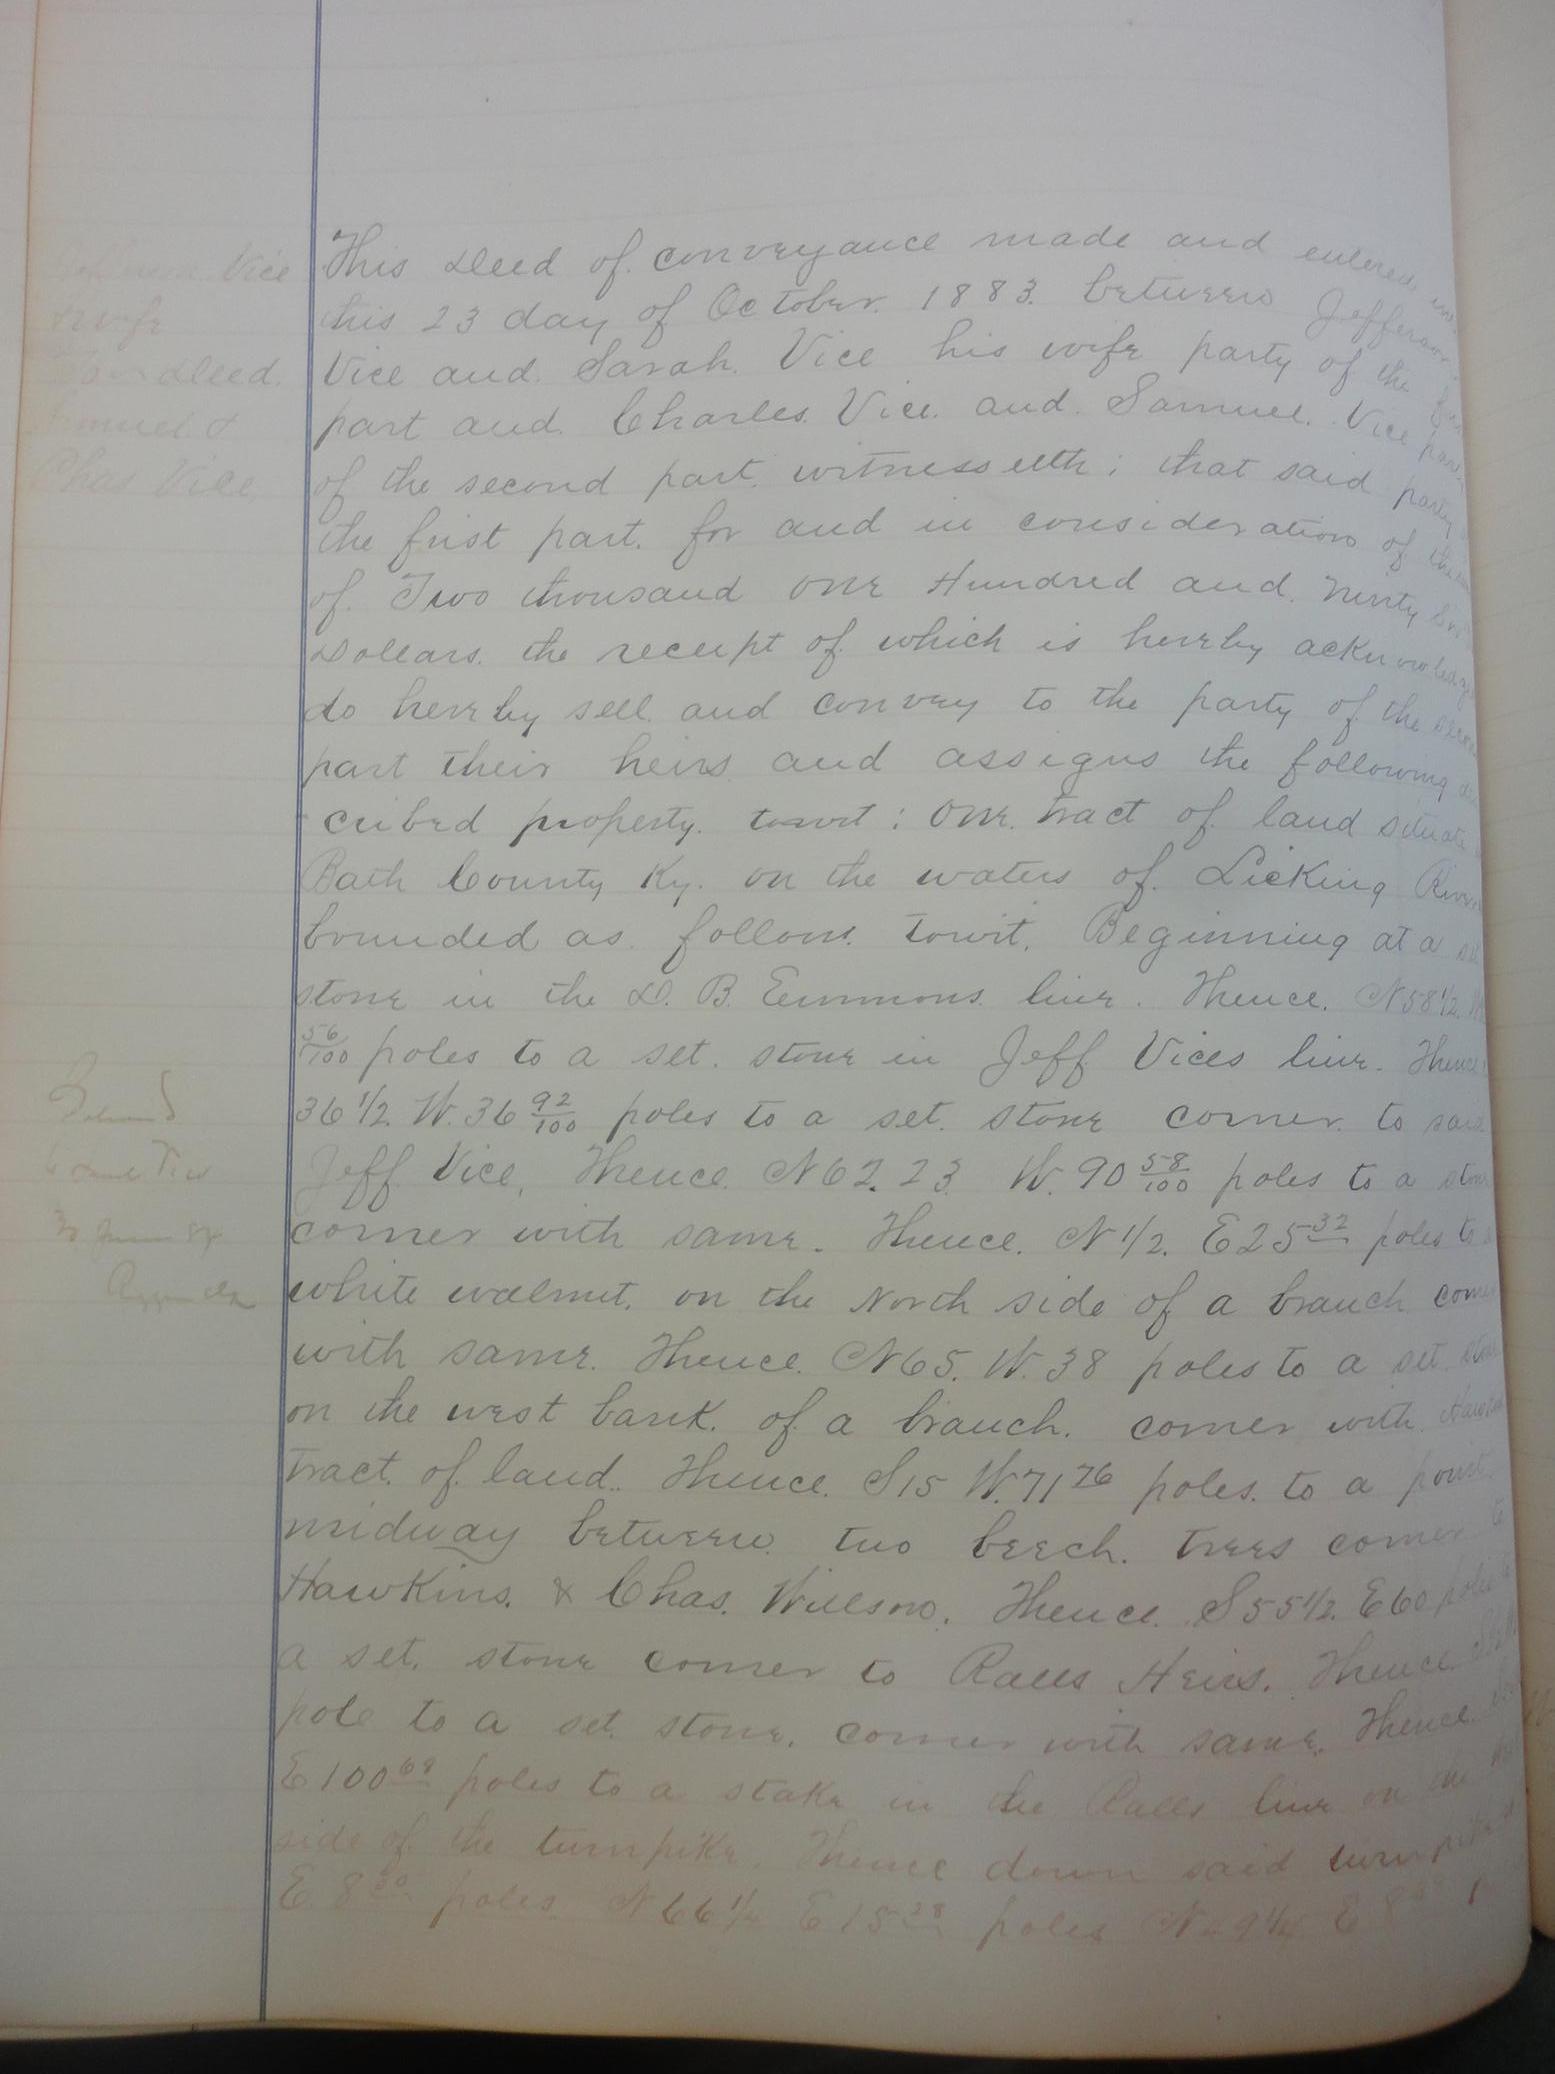 Vice
& wife
To Deed.
Samuel &
Chas Vice,
This Deed of conveyance made and entered into
this 23 day of October. 1883. between Jefferson
Vice and. Sarah. Vice his wife party of the first
part and. Charles. Vice. and. Samuel. Vice party
of the second part. witnesseth; that said party
the first part. for and in consideration of the
of. Two thousand one Hundred and. Ninty
Dollars. the receipt of which is hereby acknowledged
do hereby sell. and convey to the party of the second
part their heirs and assigns the following des
cribed property. towit: One. tract of land situate
Bath County Ky. on the waters of. Licking River
bounded as. follows. Towit. Beginning at a set
stone in the D. B. Emmons line. Thence. N58 1/2. W
56/100 poles to a set. stone in Jeff Vices line. Thence
36 1/2. W. 36 92/100 poles to a set. stone corner. to said
Jeff Vice, Thence. N62. 23 W. 90 58/100 poles to a stone
corner with same. Thence. N 1/2. E25 32 poles to a
white walnut. on the North side of a branch corner
with same. Thence. N65. W. 38 poles to a set. stone
on the west bank. of a branch. corner with
tract. of land.. Thence. S15 W. 71 76 poles. to a point
midway between two beech. trees corner to
Hawkins. & Chas. Willson. Thence. S55 1/2. E60 poles to
a set. stone corner to Ralls Heirs. Thence
pole to a set. stone. corner with same. Thence
E100 68 poles to a stake in the Ralls line on the
side of the turnpike. Thence down said turnpike
E. 8 poles N66 1/2 E15 28 poles N49 1/4 E 8